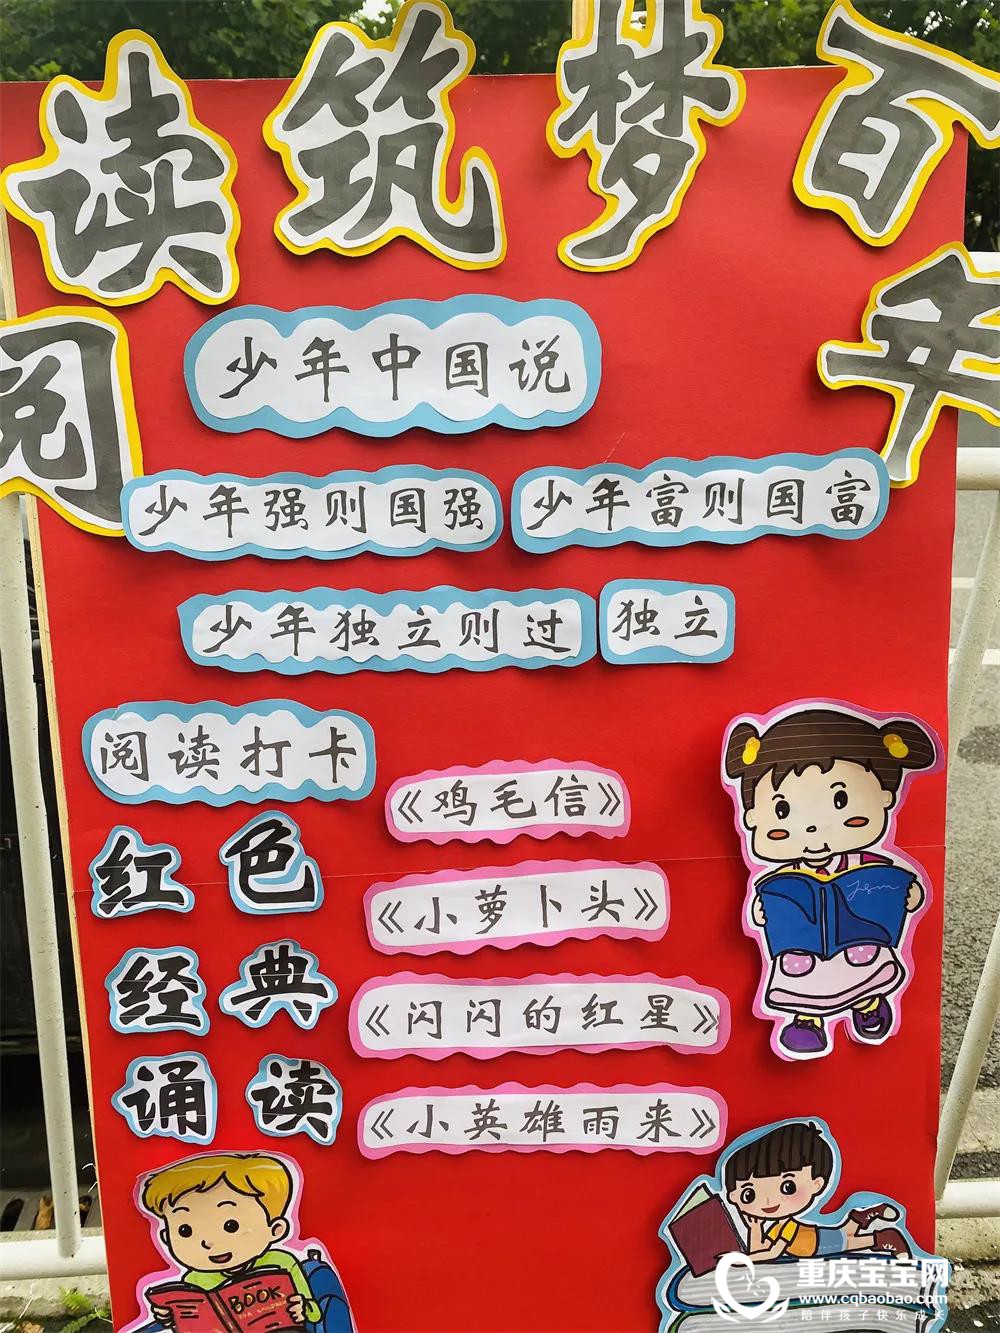 阅读筑梦百年
少年中国说
少年强则国强 少年富则国富
少年独立则过 独立
阅读打卡
红色
经典
诵读
《鸡毛信》
《小萝卜头》
《闪闪的红星》
《小英雄雨来》
BOOK
重庆宝宝网
www.cqbaobao.com
陪伴孩子快乐成长